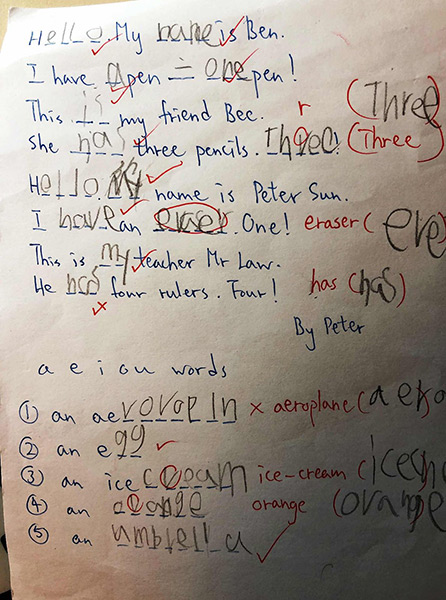 Hello. My name is Ben.
I have a pen = one pen!
This is my friend Bec. r (Three
She has three pencils. Theea. (Three)
Hello. My name is Peter Sun.
I have an eraser. One! eraser (
This is my teacher Mr Law.
He has four rulers. Four! has (has)
By Peter
a e i o u words
① an aerovopln × aeroplane (aero
② an egg
③ an ice ceeam ice-cream (icech
④ an oeange orange (orange
⑤ an umbrella